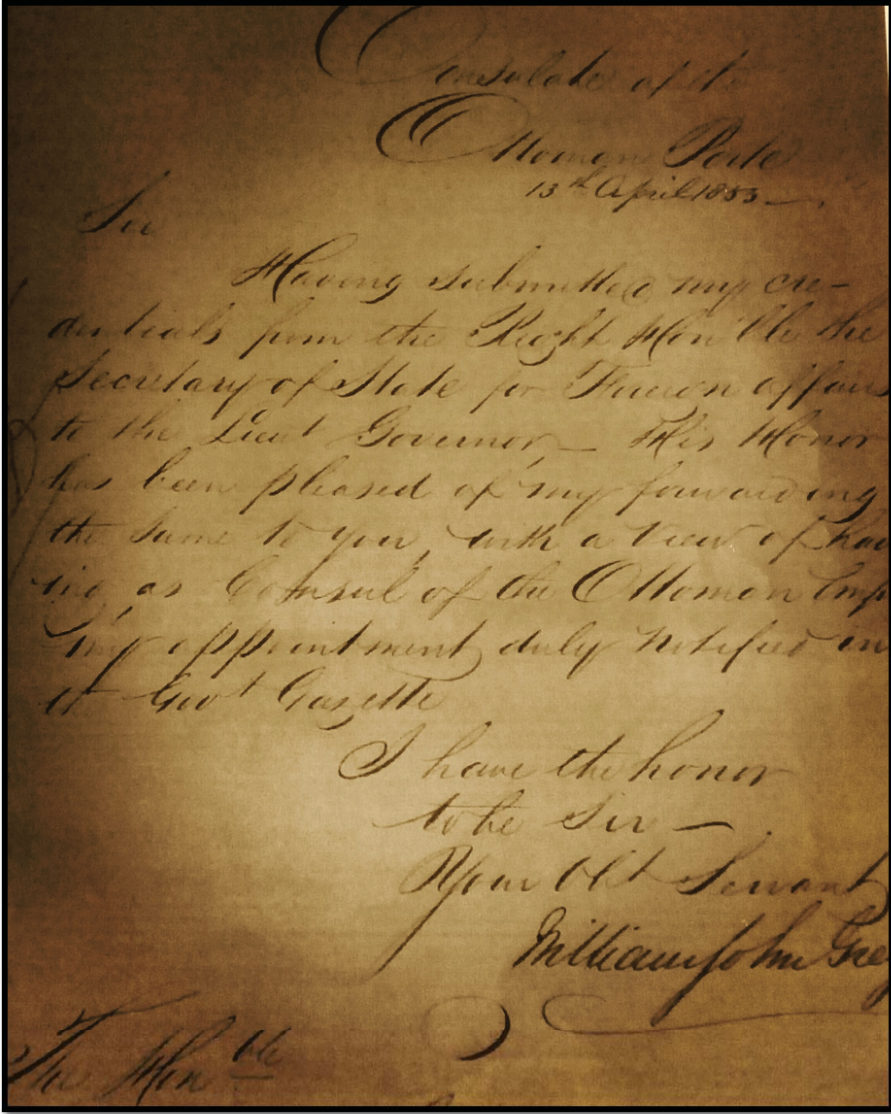 Consulate of the
Ottoman Porte
13th April 1853
Sir
Having submitted my cre-
dentials from the Right Honble the
Secretary of State for Foreign affairs
to the Lieut Governor, — His Honor
has been pleased of my forwarding
the same to you, with a view of hav
ing as Consul of the Ottoman Emp
my appointment duly notified in
Govt Gazette
I have the honor
to be Sir —
Your Obt Servant
William John Grey
The Honble